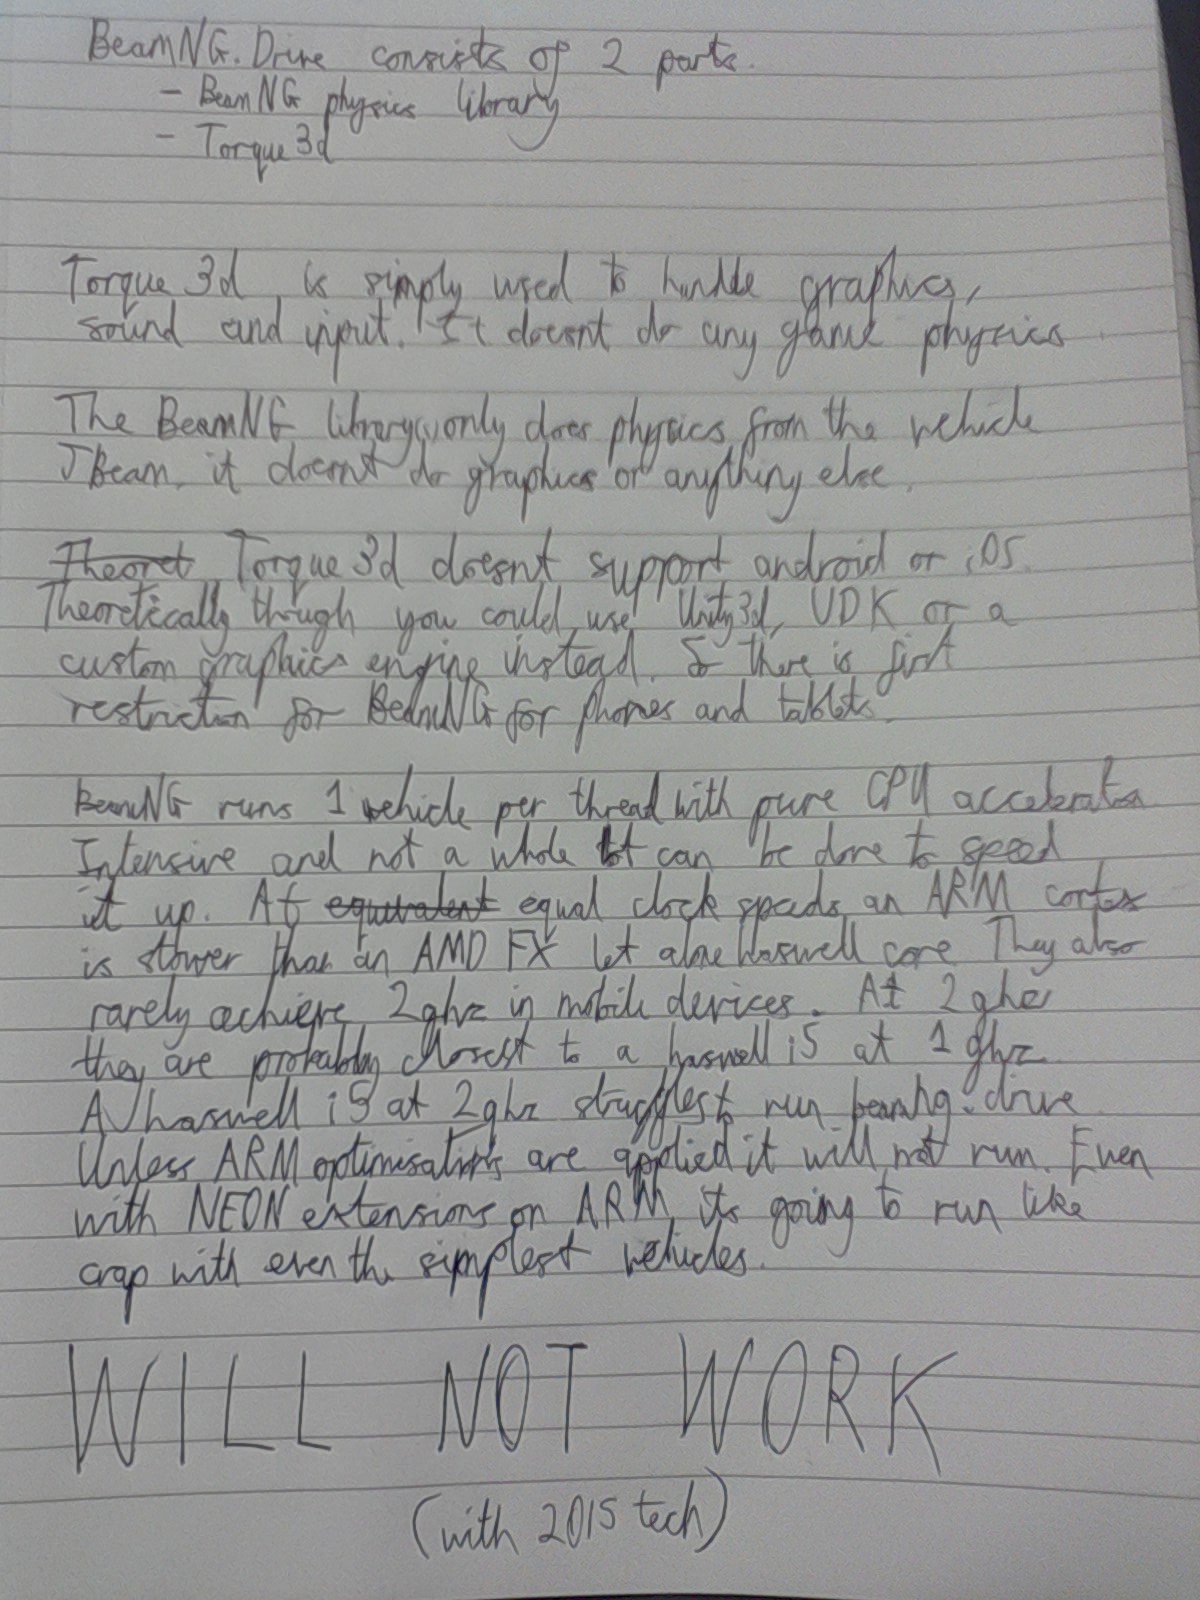 BeamNG.Drive consists of 2 parts.
- BeamNG physics library
- Torque 3d
Torque 3d is simply used to handle graphics,
sound and input. It doesnt do any game physics
The BeamNG library only does physics from the vehicle
JBeam, it doesnt do graphics or anything else.
Theoret Torque 3d doesnt support android or iOS.
Theoretically though you could use Unity3d, UDK or a
custom graphics engine instead. So there is first
restriction for BeamNG for phones and tablets.
BeamNG runs 1 vehicle per thread with pure CPU acceleration
Intensive and not a whole lot can be done to speed
it up. At equivalent equal clock speeds an ARM cortex
is slower than an AMD FX let alone haswell core. They also
rarely achieve 2ghz in mobile devices. At 2ghz
they are probably closest to a haswell i5 at 1ghz
A haswell i5 at 2ghz struggles to run beamng.drive
Unless ARM optimisations are applied it will not run. Even
with NEON extensions on ARM its going to run like
crap with even the simplest vehicles.
WILL NOT WORK
(with 2015 tech)